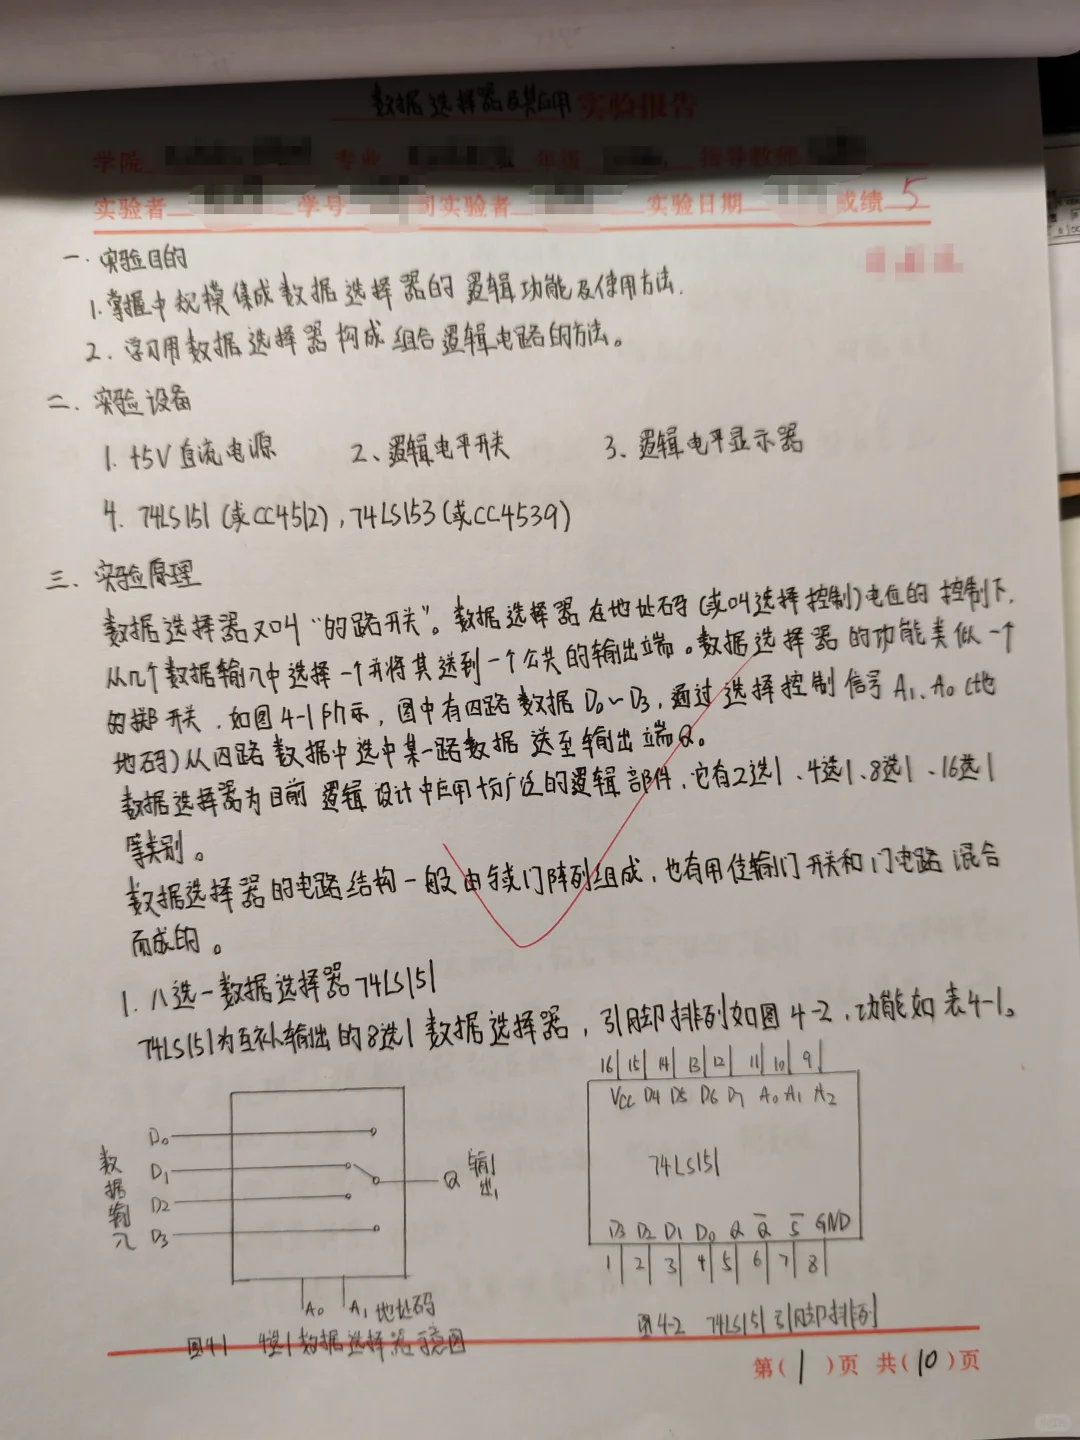 数据选择器及其应用 实验报告
学院 专业 年级 指导教师
实验者 学号 同实验者 实验日期 成绩 5
一.实验目的
1.掌握中规模集成数据选择器的逻辑功能及使用方法.
2.学习用数据选择器构成组合逻辑电路的方法。
二.实验设备
1. +5V直流电源 2、逻辑电平开关 3、逻辑电平显示器
4. 74LS151(或CC4512),74LS153(或CC4539)
三、实验原理
数据选择器又叫“的路开关”。数据选择器在地址码(或叫选择控制)电位的控制下.
从几个数据输入中选择一个并将其送到一个公共的输出端。数据选择器的功能类似一个
的掷开关.如图4-1所示,图中有四路数据D₀~D₃,通过选择控制信号A₁、A₀(地
地码)从四路数据中选中某一路数据送至输出端Q。
数据选择器为目前逻辑设计中应用十分广泛的逻辑部件.它有2选1、4选1、8选1、16选1
等类别。
数据选择器的电路结构一般由与或门阵列组成,也有用传输门开关和门电路混合
而成的。
1.八选一数据选择器74LS151
74LS151为互补输出的8选1数据选择器,引脚排列如图4-2,功能如表4-1。
16 15 14 13 12 11 10 9
Vcc D4 D5 D6 D7 A₀ A₁ A₂
74LS151
D3 D2 D1 D₀ Q Q̅ S̅ GND
1 2 3 4 5 6 7 8
图4-2 74LS151引脚排列
数据输入
D₀
D₁
D2
D3
Q 输出
A₀ A₁ 地址码
图4-1 4选1数据选择器示意图
第(1)页 共(10)页